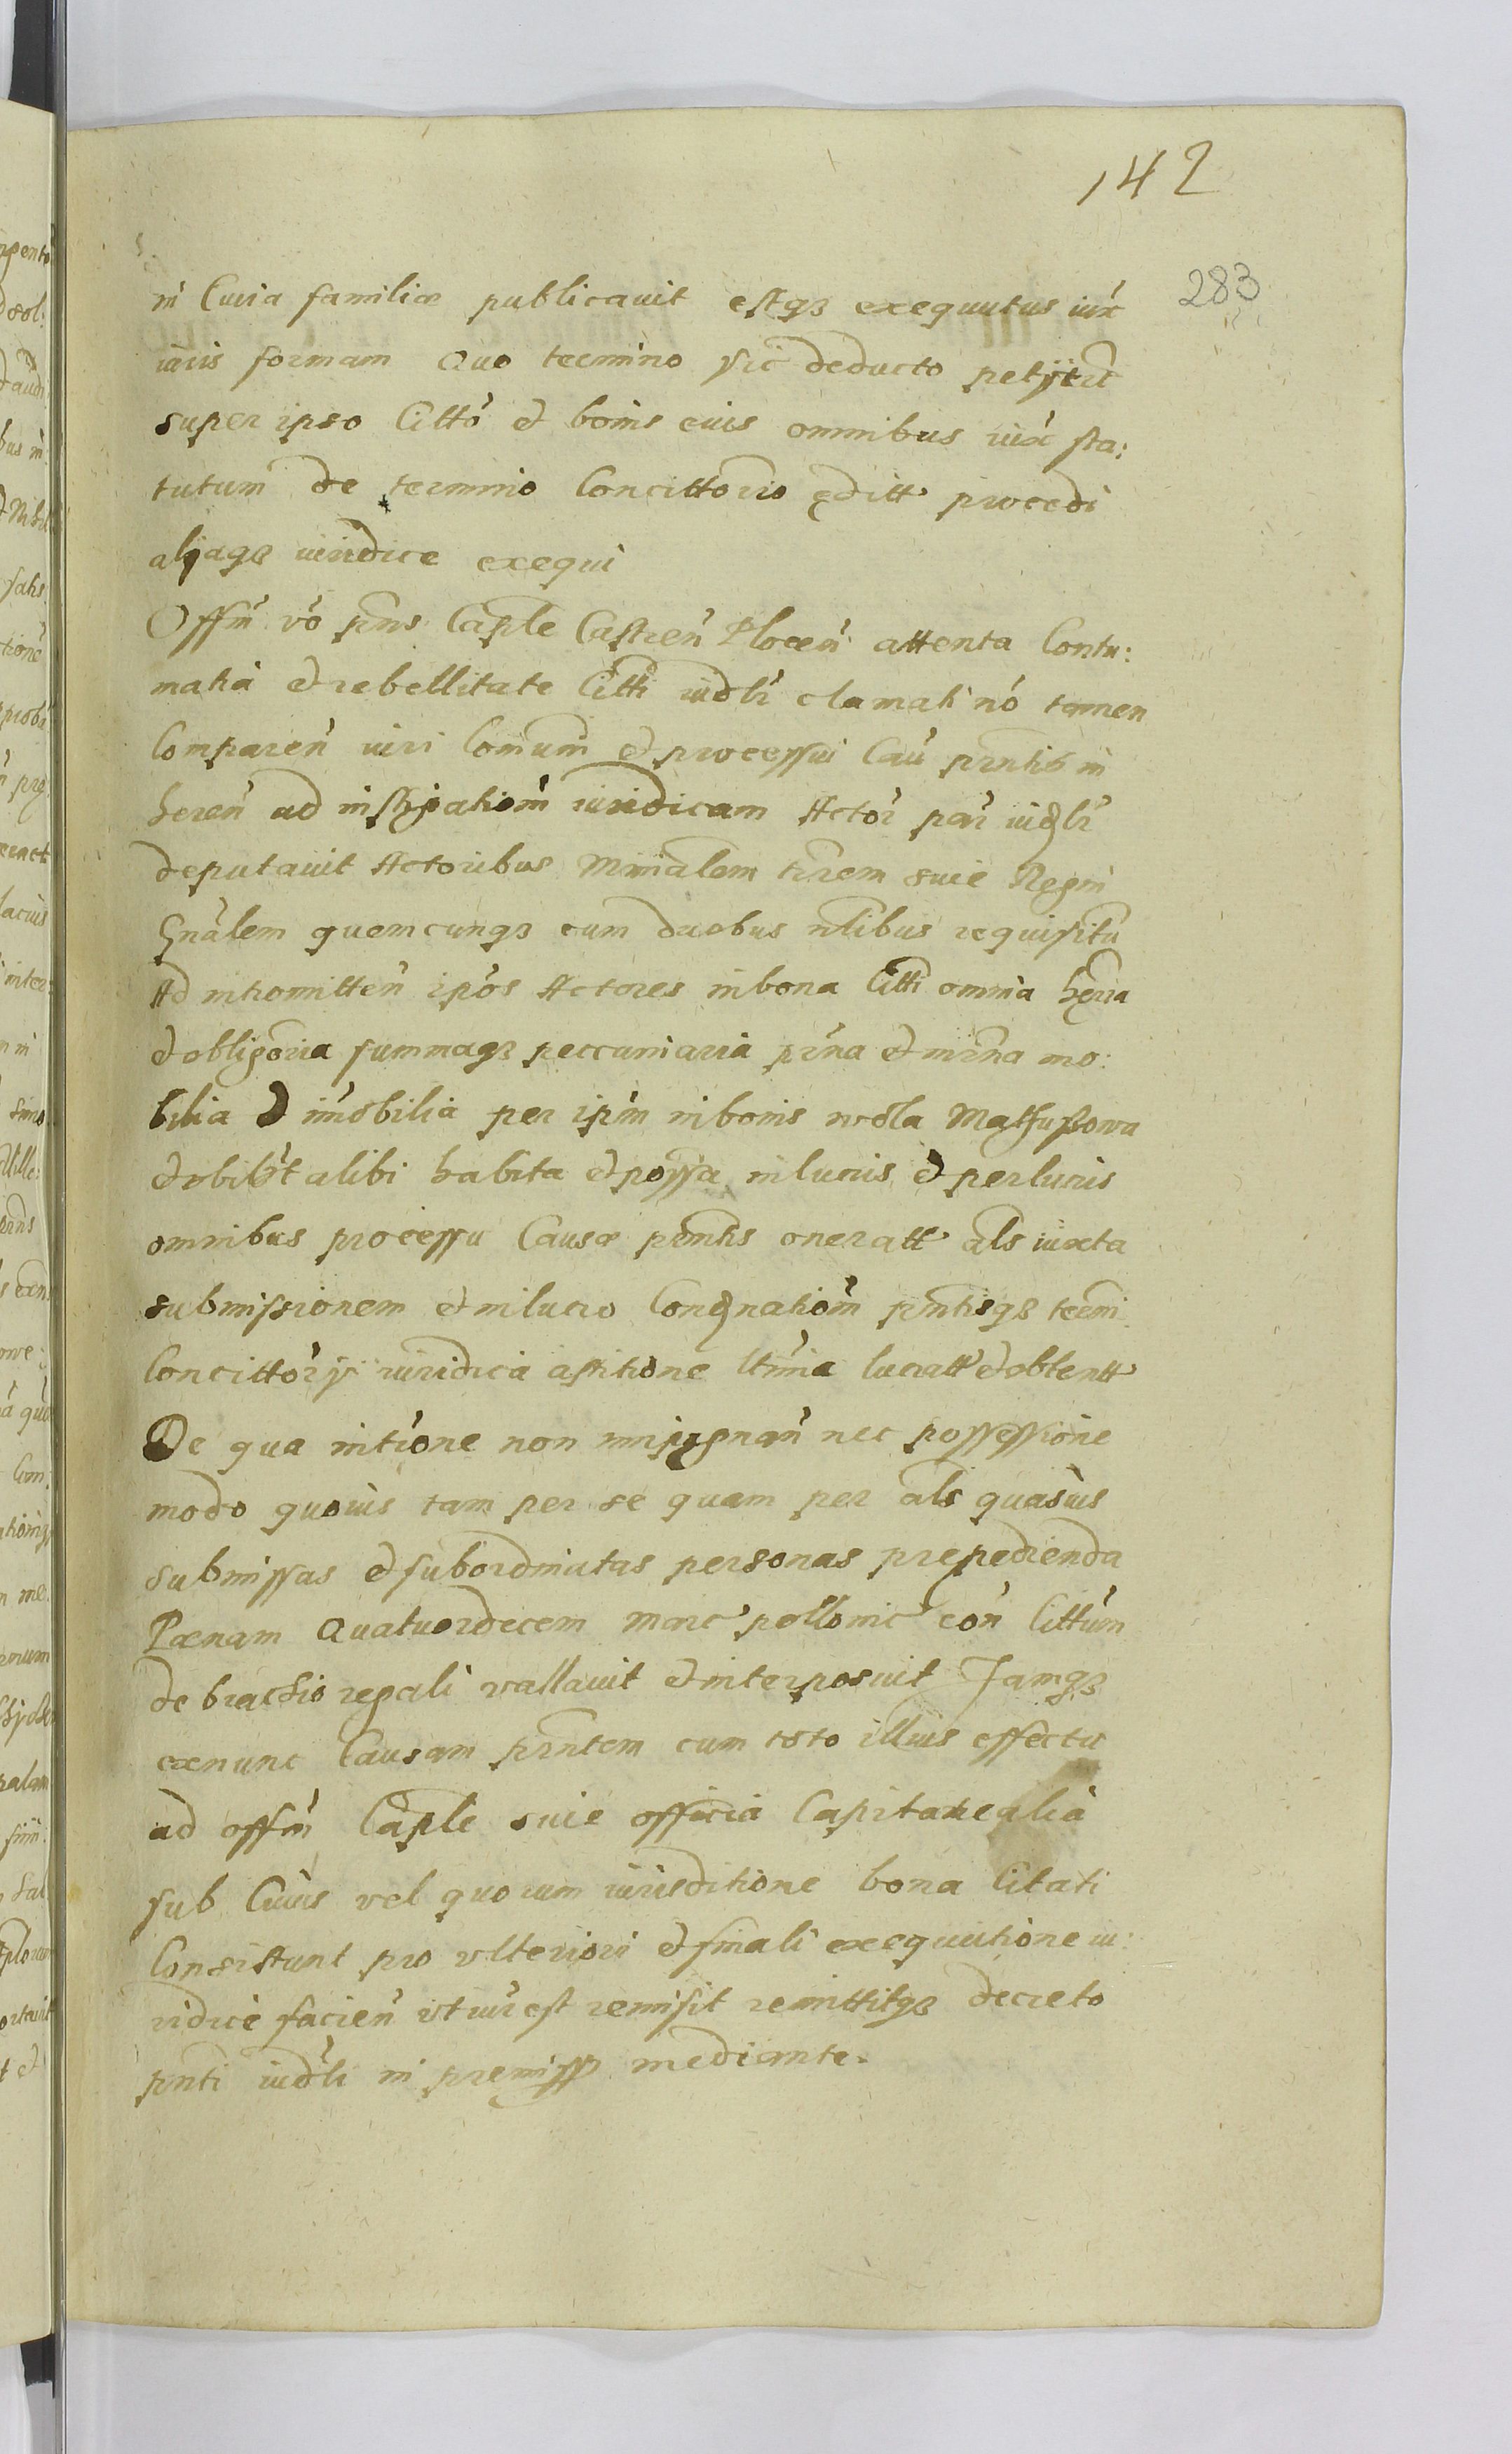 142
283
in Curia familiæ publicavit estqs exequutus iux
iuris formam Quo termino sic deducto petyt
super ipso Citto et bonis eius omnibus iux sta:
tutum de termino Concittorio editt procedi
alyaqs iuridice exequi
Offm vo pns Caple Castren Plocen attenta Contu:
matia et rebellitate Citti iudlr clamati no tamen
Comparen iuri Comum et processui Cau pntis in
heren ad instigationem iuridicam Actor par iudlr
deputavit Actoribus Minialem trrem suie Regni
Gnalem quemcunqs cum duobus nlibus requisitu
Ad intromitten ipos Actores in bona Citti omnia herria
et obligoria summaqs peccuniaria prna et mrna mo:
bilia et imobilia per ipm in bonis
et vbibt alibi habita et possa in lucris et per lucris
omnibus processu Causæ pntis oneratt als iuxta
submissionem et in lucro Condnationem pntisqs termi
Concittory iuridica astitione ltima lucratt et obtentt
De qua intione non impugnan nec possessione
modo quovis tam per se quam per als quasvis
submissas et subordinatas personas prepedienda
Pænam Quatuordecem Marc pollonic con Cittum
de brachio regali vallavit et interposuit Jamqs
exnunc Causam prntem cum toto illius effectu
ad offm Caple suie officia Capitanealia
sub Cuius vel quorum iurisditione bona Citati
Consistunt pro vlteriori et finali exequutione iu:
ridice facien vt iur est remisit remittitqs decreto
pnti iudli in premiss mediante.